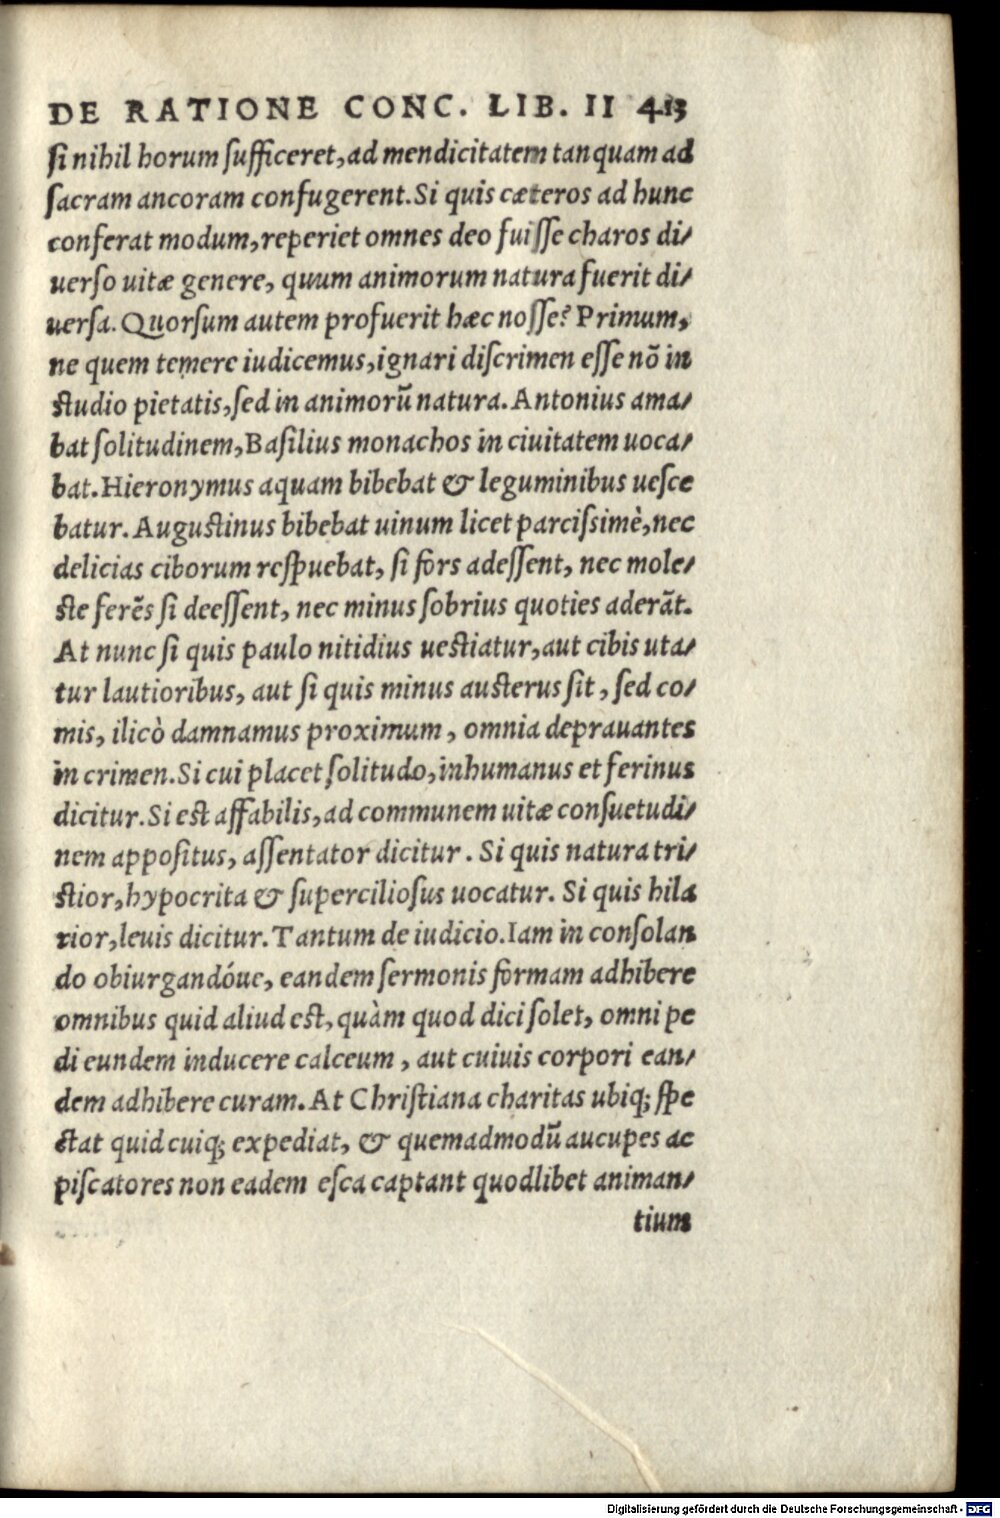 DE RATIONE CONC. LIB. II 413
ſi nihil horum ſufficeret, ad mendicitatem tanquam ad
ſacram ancoram confugerent. Si quis cæteros ad hunc
conferat modum, reperiet omnes deo fuiſſe charos di/
uerſo uitæ genere, quum animorum natura fuerit di/
uerſa. Quorſum autem profuerit hæc noſſe? Primum,
ne quem temere iudicemus, ignari diſcrimen eſſe nō in
ſtudio pietatis, ſed in animorū natura. Antonius ama/
bat ſolitudinem, Baſilius monachos in ciuitatem uoca/
bat. Hieronymus aquam bibebat & leguminibus ueſce
batur. Auguſtinus bibebat uinum licet parciſſimè, nec
delicias ciborum reſpuebat, ſi fors adeſſent, nec mole/
ſte ferẽs ſi deeſſent, nec minus ſobrius quoties aderãt.
At nunc ſi quis paulo nitidius ueſtiatur, aut cibis uta/
tur lautioribus, aut ſi quis minus auſterus ſit, ſed co/
mis, ilicò damnamus proximum, omnia deprauantes
in crimen. Si cui placet ſolitudo, inhumanus et ferinus
dicitur. Si eſt affabilis, ad communem uitæ conſuetudi/
nem appoſitus, aſſentator dicitur. Si quis natura tri/
ſtior, hypocrita & ſupercilioſus uocatur. Si quis hila
rior, leuis dicitur. Tantum de iudicio. Iam in conſolan
do obiurgandóue, eandem ſermonis formam adhibere
omnibus quid aliud eſt, quàm quod dici ſolet, omni pe
di eundem inducere calceum, aut cuiuis corpori ean/
dem adhibere curam. At Chriſtiana charitas ubiq; ſpe
ctat quid cuiq; expediat, & quemadmodū aucupes ac
piſcatores non eadem eſca captant quodlibet animan/
tium
Digitalisierung gefördert durch die Deutsche Forschungsgemeinschaft - DFG